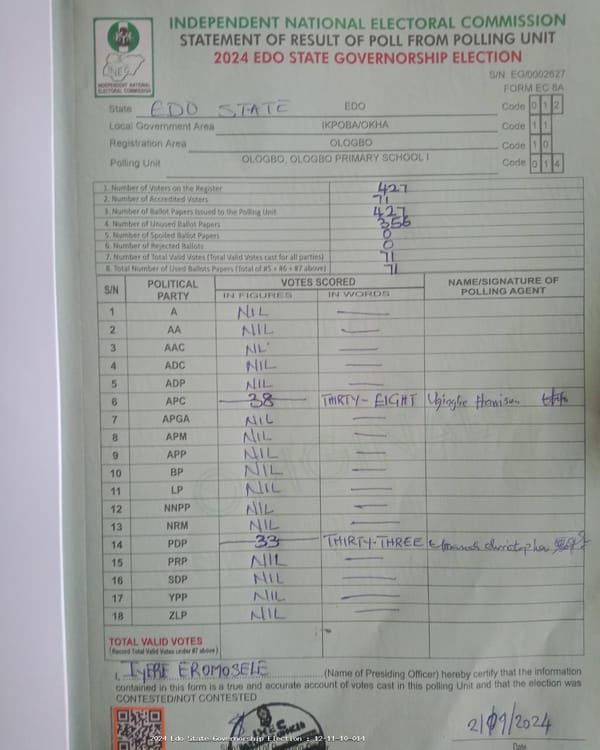 INDEPENDENT NATIONAL ELECTORAL COMMISSION
STATEMENT OF RESULT OF POLL FROM POLLING UNIT
2024 EDO STATE GOVERNORSHIP ELECTION
INEC
INDEPENDENT NATIONAL ELECTORAL COMMISSION
S/N: EG/0002627
FORM EC 8A
State EDO STATE EDO Code 0 1 2
Local Government Area IKPOBA/OKHA Code 1 1
Registration Area OLOGBO Code 1 0
Polling Unit OLOGBO, OLOGBO PRIMARY SCHOOL I Code 0 1 4
1. Number of Voters on the Register 427
2. Number of Accredited Voters 71
3. Number of Ballot Papers Issued to the Polling Unit 427
4. Number of Unused Ballot Papers 356
5. Number of Spoiled Ballot Papers 0
6. Number of Rejected Ballots 0
7. Number of Total Valid Votes (Total Valid Votes cast for all parties) 71
8. Total Number of Used Ballots Papers (Total of #5 + #6 + #7 above) 71
S/N POLITICAL PARTY VOTES SCORED NAME/SIGNATURE OF POLLING AGENT
IN FIGURES IN WORDS
1 A NIL
2 AA NIL
3 AAC NIL
4 ADC NIL
5 ADP NIL
6 APC 38 THIRTY-EIGHT
7 APGA NIL
8 APM NIL
9 APP NIL
10 BP NIL
11 LP NIL
12 NNPP NIL
13 NRM NIL
14 PDP 33 THIRTY-THREE
15 PRP NIL
16 SDP NIL
17 YPP NIL
18 ZLP NIL
TOTAL VALID VOTES
(Record Total Valid Votes under #7 above)
I, IYERE EROMOSELE (Name of Presiding Officer) hereby certify that the information
contained in this form is a true and accurate account of votes cast in this polling Unit and that the election was
CONTESTED/NOT CONTESTED
21/09/2024
Date
2024 Edo State Governorship Election : 12-11-10-014